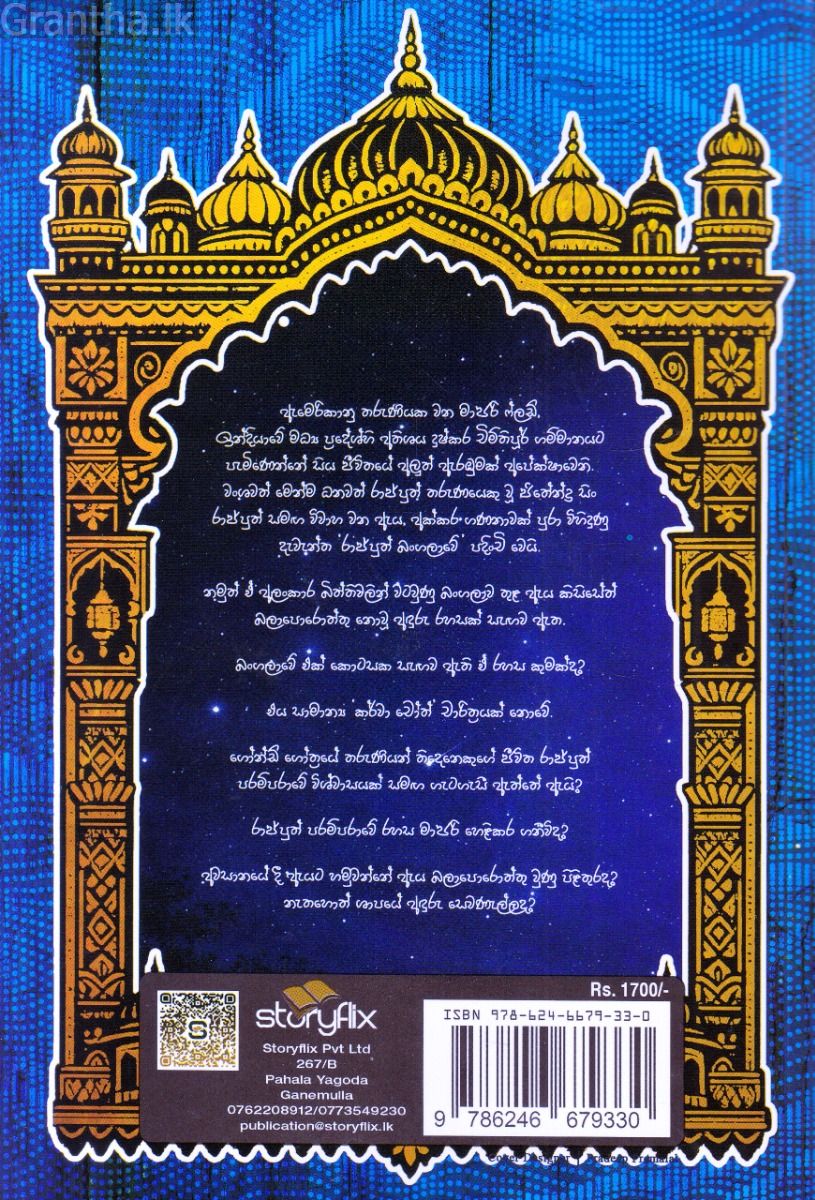 Grantha.lk
ඇමෙරිකානු තරුණියක වන මාජරි ෆ්ලඩ්,
ඉන්දියාවේ මධ්‍ය ප්‍රදේශ්හි අතිශය දුෂ්කර චිමිතිපූර් ගම්මානයට
පැමිණෙන්නේ සිය ජීවිතයේ අලුත් ඇරඹුමක් අපේක්ෂාවෙනි.
වංශවත් මෙන්ම ධනවත් රාජ්පුත් තරුණයෙකු වූ ජිතේන්ද්‍ර සිං
රාජ්පුත් සමඟ විවාහ වන ඇය, අක්කර ගණනාවක් පුරා විහිදුණු
දැවැන්ත 'රාජ්පුත් බංගලාවේ' පදිංචි වෙයි.
නමුත් ඒ අලංකාර බිත්තිවලින් වටවුණු බංගලාව තුළ ඇය කිසිසේත්
බලාපොරොත්තු නොවූ අඳුරු රහසක් සැඟව ඇත.
බංගලාවේ එක් කොටසක සැඟව ඇති ඒ රහස කුමක්ද?
එය සාමාන්‍ය 'කර්වා චෝත්' චාරිත්‍රයක් නොවේ.
ගෝන්ඩ් ගෝත්‍රයේ තරුණියන් තිදෙනෙකුගේ ජීවිත රාජ්පුත්
පරම්පරාවේ විශ්වාසයක් සමඟ ගැටගැසී ඇත්තේ ඇයි?
රාජ්පුත් පරම්පරාවේ රහස මාජරි හෙළිකර ගනීවිද?
අවසානයේ දී ඇයට හමුවන්නේ ඇය බලාපොරොත්තු වුණු පිළිතුරද?
නැතහොත් ශාපයේ අඳුරු සෙවණැල්ලද?
storyflix
Storyflix Pvt Ltd
267/B
Pahala Yagoda
Ganemulla
0762208912/0773549230
publication@storyflix.lk
Rs. 1700/-
ISBN 978-624-6679-33-0
9 786246 679330
Cover Designer | Pradeep Premalal